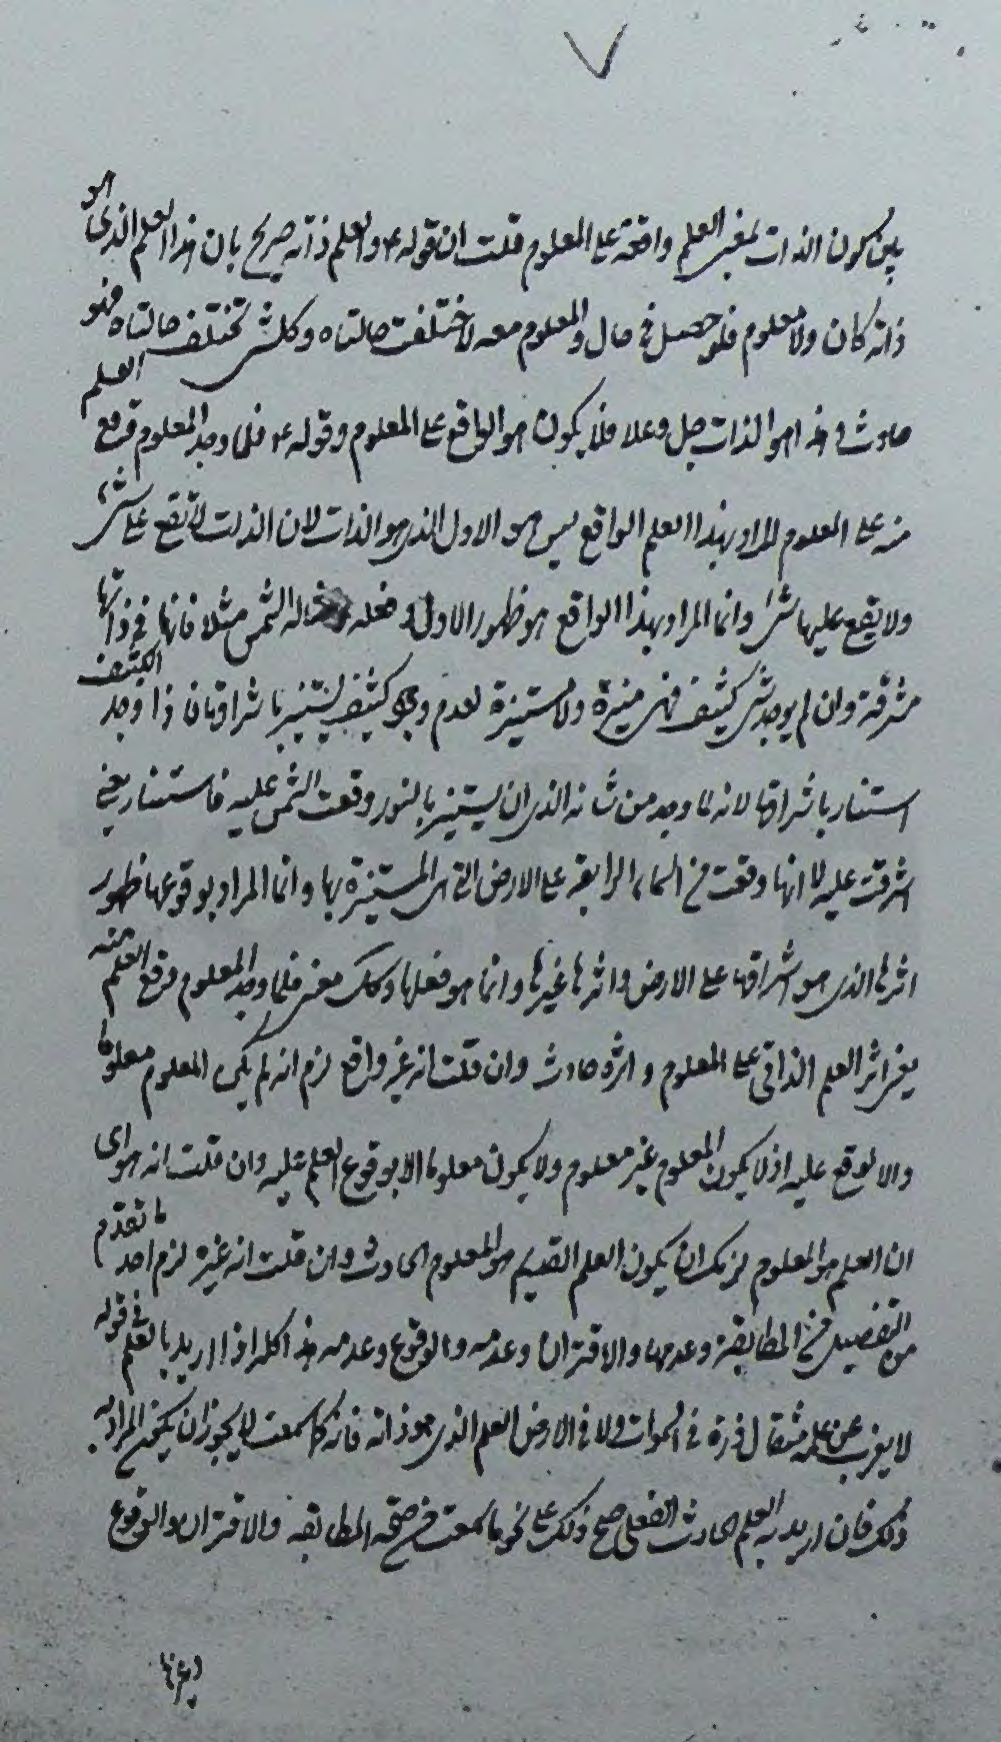 ٧
بان يكون الذات بمعنى العلم واقعة على المعلوم قلت ان قوله ع والعلم ذاته صريح بان هذا العلم الذي هو
ذاته كان ولا معلوم فلو حصل في حال والمعلوم معه لاختلفت حالتاه وكل شيء تختلف حالتاه فهو
حادث وهذا هو الذات جل وعلا فلا يكون هو الواقع على المعلوم وقوله ع فلما وجد المعلوم وقع العلم
منه على المعلوم المراد بهذا العلم الواقع ليس هو الاول الذي هو الذات لان الذات لا تقع على شيء
ولا يقع عليها شيء وانما المراد بهذا الواقع هو ظهور الاول في فعله له الشمس مثلا فانها في ذاتها
مشرقة وان لم يوجد شيء كثيف فهي منيرة ولا مستنيرة لعدم وجود كثيف ليستنير باشراقها فاذا وجد الكثيف
استنار باشراقها لانه لما وجد من شانه الذي ان يستنير بالنور وقعت الشمس عليه فاستنار يعني
اشرقت عليه لا انها وقعت من السماء الرابعة على الارض التي هي المستنيرة بها وانما المراد بوقوعها ظهور
اثرها الذي هو اشراقها على الارض واثرها غيرها وانما هو فعلها وكذلك معنى فلما وجد المعلوم وقع العلم منه
يعني اثر العلم الذاتي على المعلوم واثره حادث وان قلت انه غير واقع لزم انه لم يكن المعلوم معلوما
والا لوقع عليه اذ لا يكون المعلوم غير معلوم ولا يكون معلوما الا بوقوع العلم عليه وان قلت انه هو اى
ان العلم هو المعلوم لزمك ان يكون العلم القديم هو المعلوم الحادث وان قلت انه غيره لزم احد ما تقدم
من التفصيل من المطابقة وعدمها والاقتران وعدمه والوقوع وعدمه هذا كله اذا اريد بالعلم في قوله
لا يعزب عن علمه مثقال ذرة في السموات ولا في الارض العلم الذي هو ذاته فانه كما سمعت لا يجوز ان يكون المراد به
ذلك فان اريد به العلم الحادث الفعلي صح ذلك على نحو ما سمعت من صحة المطابقة والاقتران والوقوع